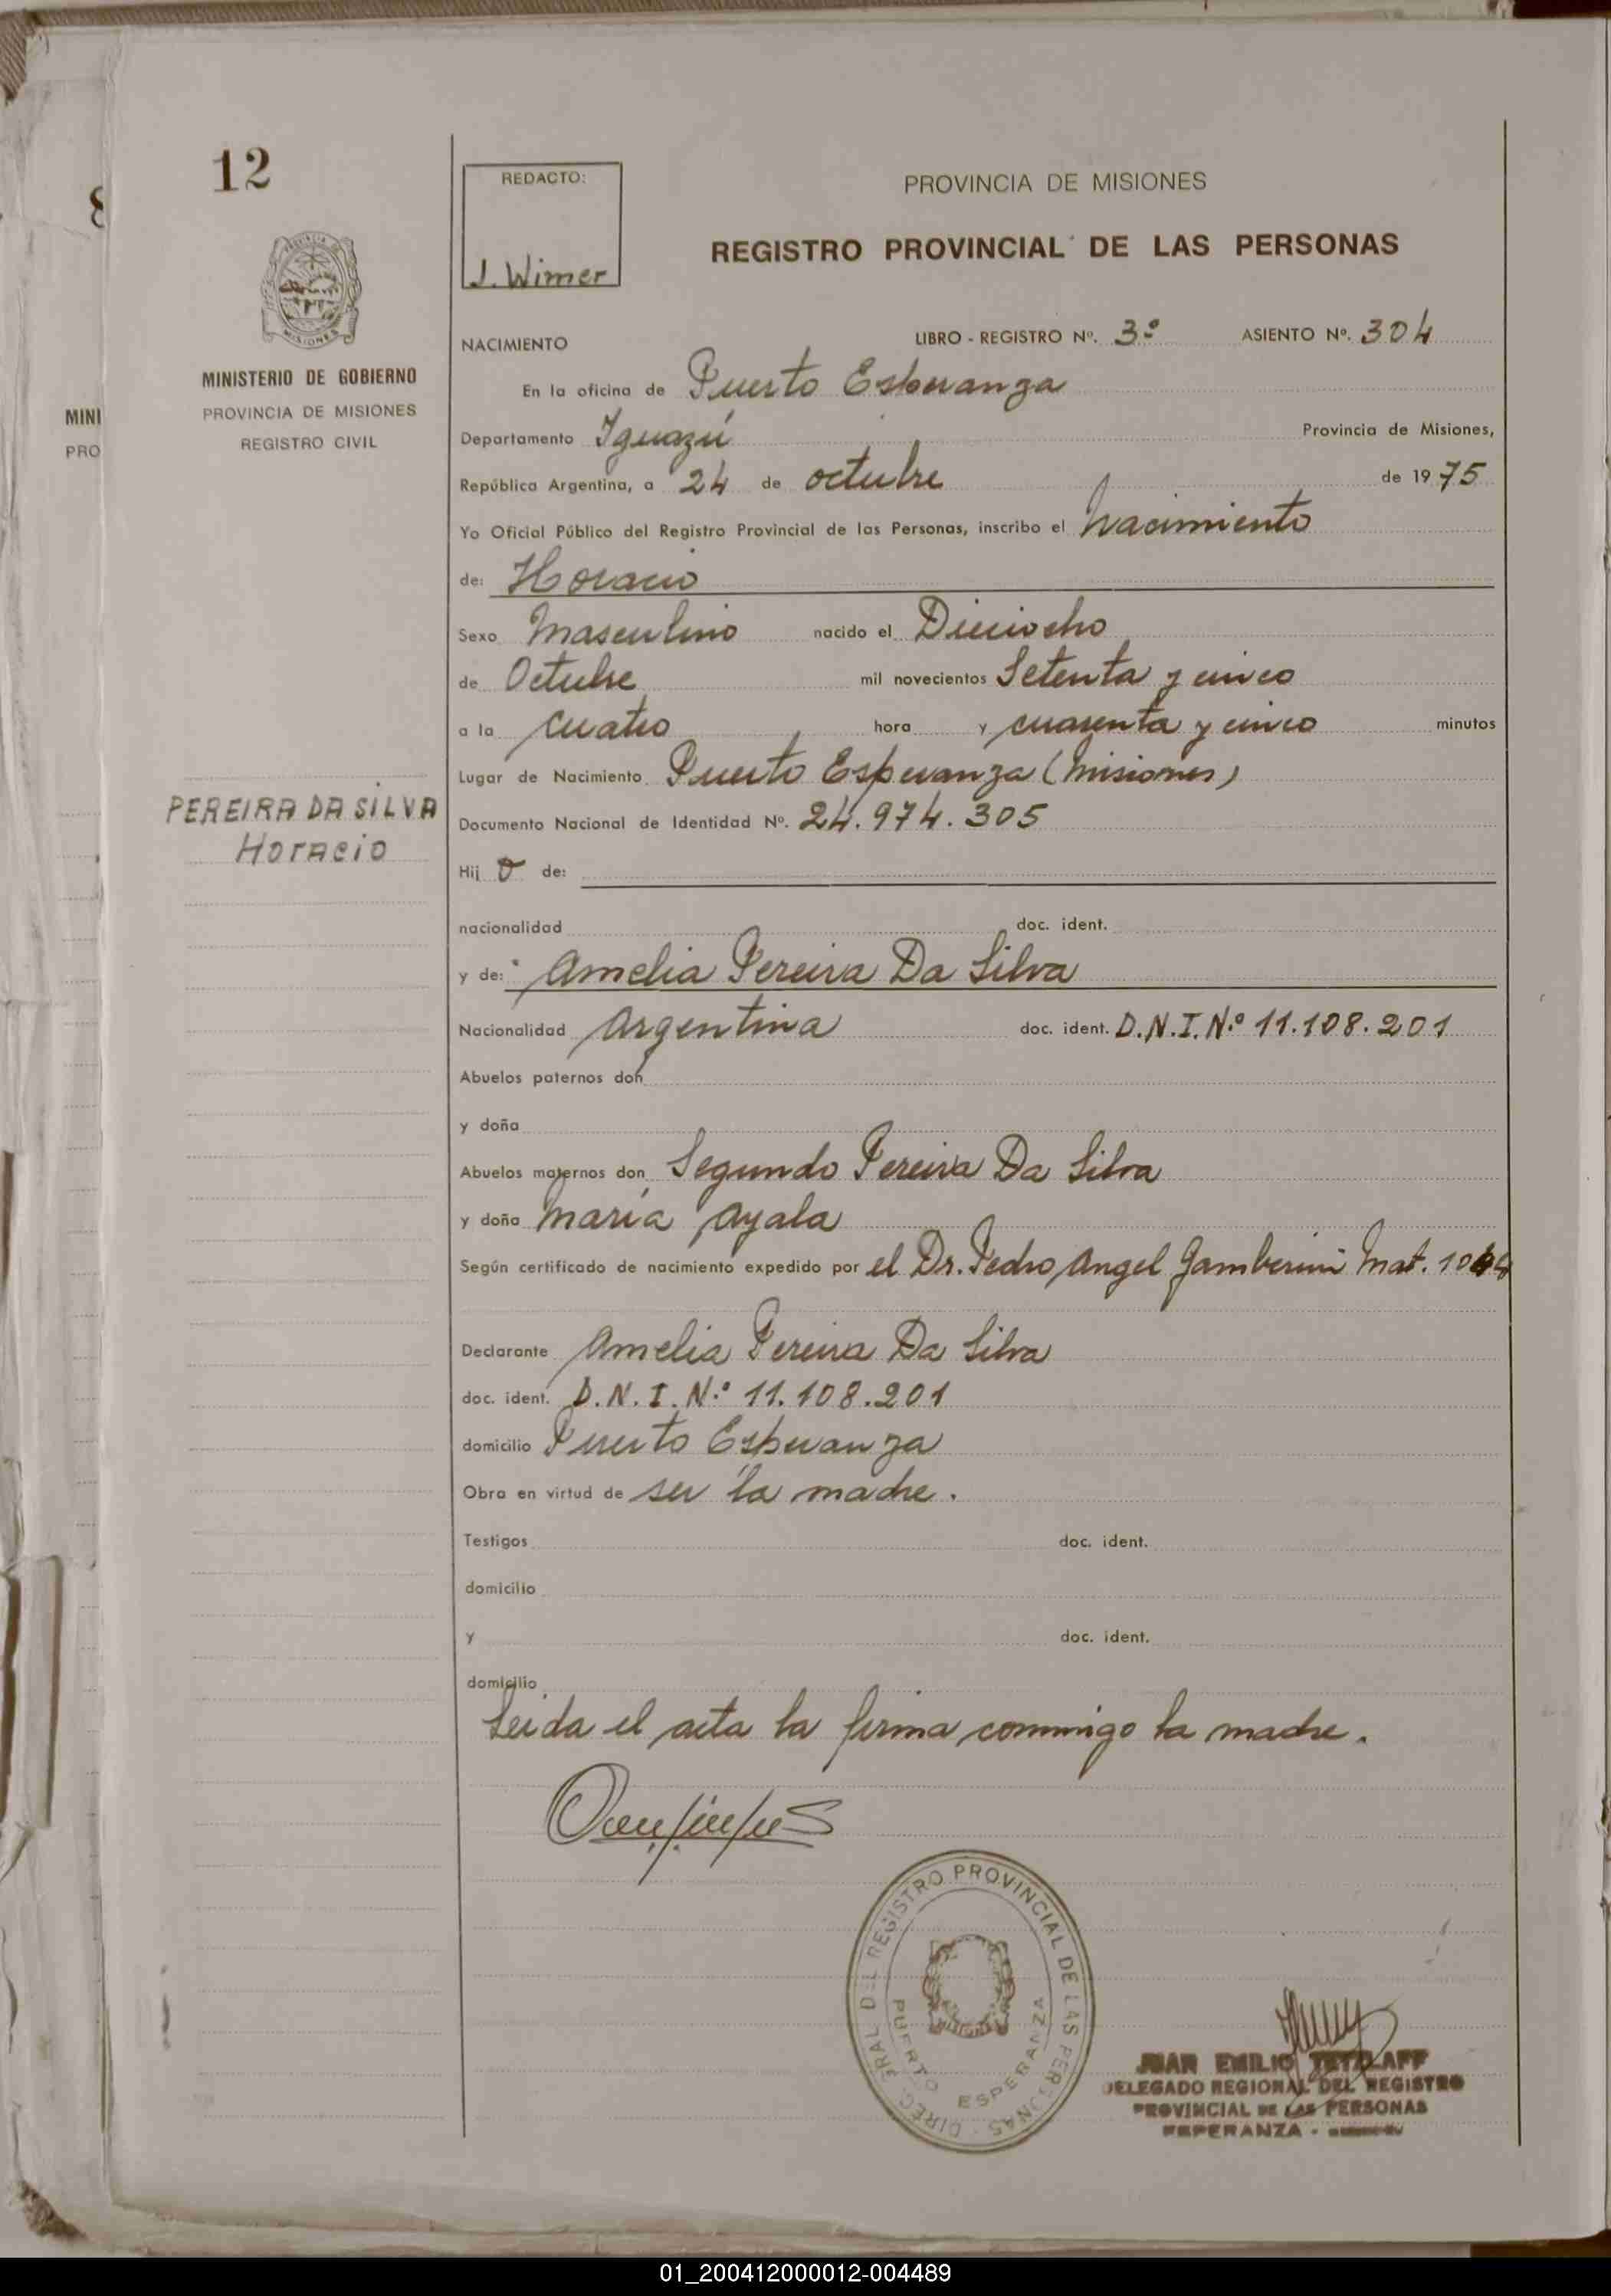 12
REDACTO:
J. Wimer
PROVINCIA DE MISIONES
REGISTRO PROVINCIAL DE LAS PERSONAS
MISIONES
MINISTERIO DE GOBIERNO
PROVINCIA DE MISIONES
REGISTRO CIVIL
MINI
PRO
PEREIRA DA SILVA
Horacio
NACIMIENTO LIBRO - REGISTRO Nº. 3º ASIENTO Nº. 304
En la oficina de Puerto Esperanza
Departamento Iguazú Provincia de Misiones,
República Argentina, a 24 de octubre de 1975
Yo Oficial Público del Registro Provincial de las Personas, inscribo el Nacimiento
de: Horacio
Sexo Masculino nacido el Dieciocho
de Octubre mil novecientos Setenta y cinco
a la cuatro hora y cuarenta y cinco minutos
Lugar de Nacimiento Puerto Esperanza (Misiones)
Documento Nacional de Identidad Nº. 24.974.305
Hij o de:
nacionalidad doc. ident.
y de: Amelia Pereira Da Silva
Nacionalidad Argentina doc. ident. D.N.I.Nº 11.108.201
Abuelos paternos don
y doña
Abuelos maternos don Segundo Pereira Da Silva
y doña María Ayala
Según certificado de nacimiento expedido por el Dr. Pedro Angel Gamberini Mat.
Declarante Amelia Pereira Da Silva
doc. ident. D.N.I.Nº 11.108.201
domicilio Puerto Esperanza
Obra en virtud de ser la madre.
Testigos doc. ident.
domicilio
y doc. ident.
domicilio
Leida el acta la firma conmigo la madre.
DIREC. GRAL. DEL REGISTRO PROVINCIAL DE LAS PERSONAS
PUERTO ESPERANZA
JUAN EMILIO TETZLAFF
DELEGADO REGIONAL DEL REGISTRO
PROVINCIAL DE LAS PERSONAS
ESPERANZA -
01_200412000012-004489